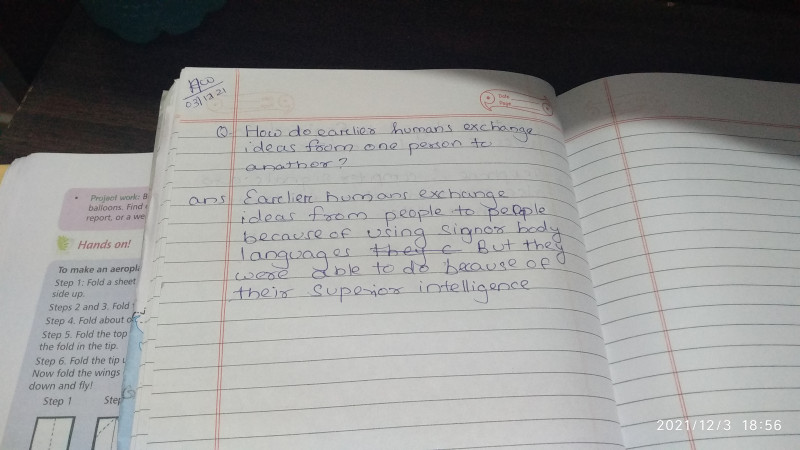 HW
03/12/21
Date
Page
Q. How do earlier humans exchange
ideas from one person to
anather?
ans Earlier humans exchange
ideas from people to people
because of using sign or body
languages they c But they
were able to do because of
their superior intelligence
• Project work: B
balloons. Find
report, or a we
Hands on!
To make an aeropl
Step 1: Fold a sheet
side up.
Steps 2 and 3. Fold
Step 4. Fold about o
Step 5. Fold the top
the fold in the tip.
Step 6. Fold the tip u
Now fold the wings
down and fly!
Step 1 Step
2021/12/3 18:56